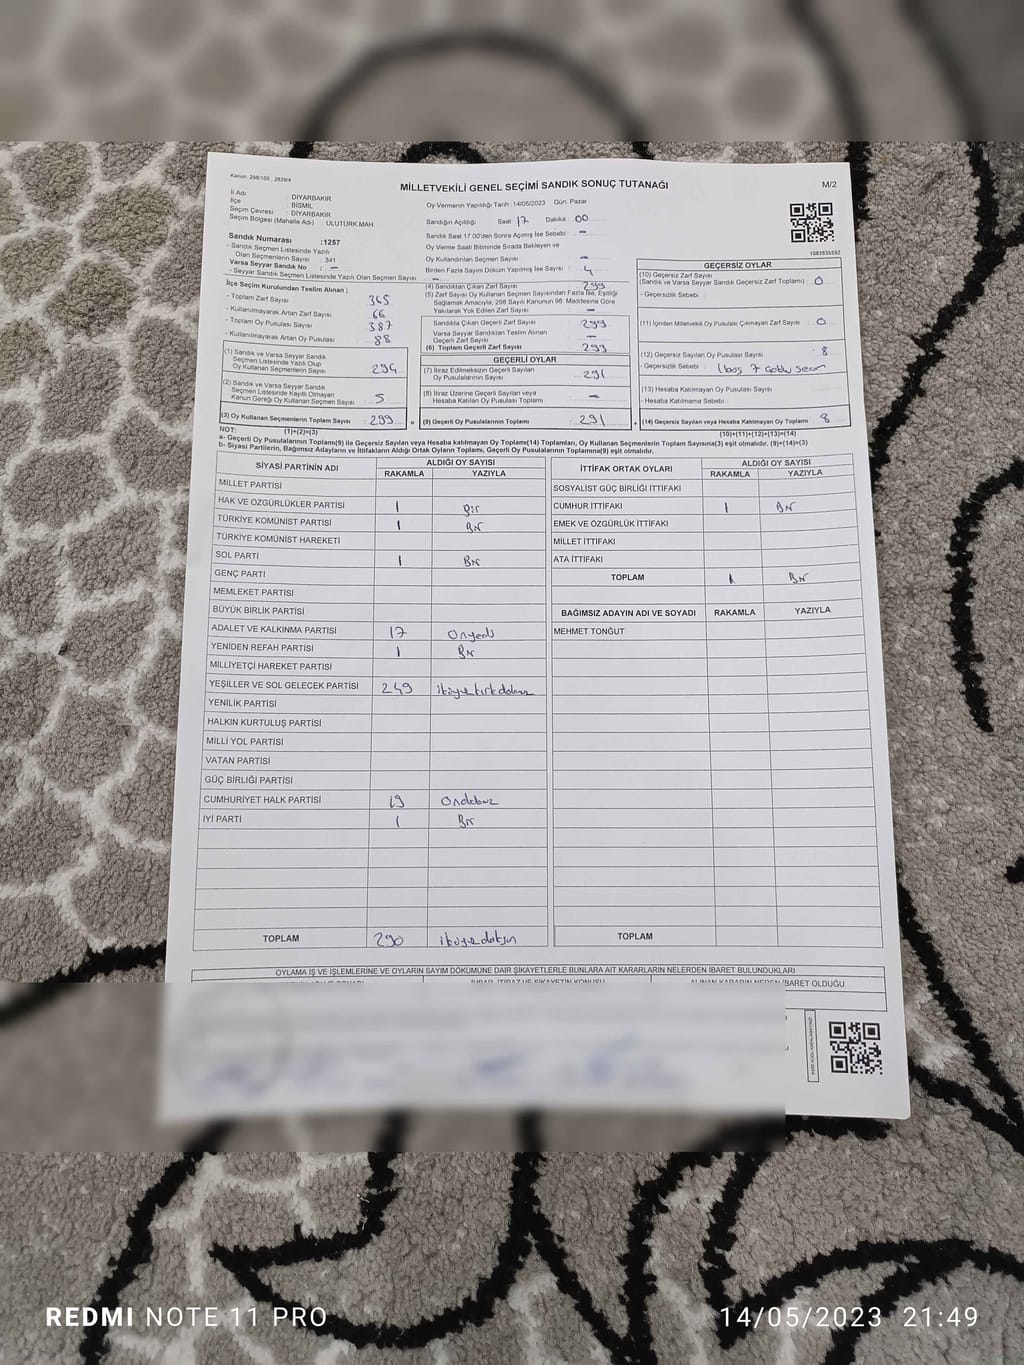 Kanun: 298/105 , 2839/4
MİLLETVEKİLİ GENEL SEÇİMİ SANDIK SONUÇ TUTANAĞI
M/2
İl Adı DİYARBAKIR
İlçe BİSMİL
Seçim Çevresi : DİYARBAKIR
Seçim Bölgesi (Mahalle Adı) : ULUTÜRK MAH.
Sandık Numarası :1257
- Sandık Seçmen Listesinde Yazılı
Olan Seçmenlerin Sayısı : 341
Varsa Seyyar Sandık No : -
- Seyyar Sandık Seçmen Listesinde Yazılı Olan Seçmen Sayısı : -
Oy Vermenin Yapıldığı Tarih : 14/05/2023 Gün: Pazar
Sandığın Açıldığı Saat: 17 Dakika : 00
Sandık Saat 17.00'den Sonra Açılmış İse Sebebi : -
Oy Verme Saati Bitiminde Sırada Bekleyen ve
Oy Kullandırılan Seçmen Sayısı : -
Birden Fazla Sayım Döküm Yapılmış İse Sayısı : 4
1083835592
İlçe Seçim Kurulundan Teslim Alınan ;
- Toplam Zarf Sayısı 365
- Kullanılmayarak Artan Zarf Sayısı 66
- Toplam Oy Pusulası Sayısı 387
- Kullanılmayarak Artan Oy Pusulası 88
(1) Sandık ve Varsa Seyyar Sandık
Seçmen Listesinde Yazılı Olup
Oy Kullanan Seçmenlerin Sayısı : 294
(2) Sandık ve Varsa Seyyar Sandık
Seçmen Listesinde Kayıtlı Olmayan
Kanun Gereği Oy Kullanan Seçmen Sayısı : 5
(3) Oy Kullanan Seçmenlerin Toplam Sayısı : 299
(4) Sandıktan Çıkan Zarf Sayısı : 299
(5) Zarf Sayısı Oy Kullanan Seçmen Sayısından Fazla İse, Eşitliği
Sağlamak Amacıyla, 298 Sayılı Kanunun 98. Maddesine Göre
Yakılarak Yok Edilen Zarf Sayısı : -
Sandıkta Çıkan Geçerli Zarf Sayısı : 299
Varsa Seyyar Sandıktan Teslim Alınan
Geçerli Zarf Sayısı : -
(6) Toplam Geçerli Zarf Sayısı : 299
GEÇERLİ OYLAR
(7) İtiraz Edilmeksizin Geçerli Sayılan
Oy Pusulalarının Sayısı : 291
(8) İtiraz Üzerine Geçerli Sayılan veya
Hesaba Katılan Oy Pusulası Toplamı : -
(9) Geçerli Oy Pusulalarının Toplamı : 291
GEÇERSİZ OYLAR
(10) Geçersiz Zarf Sayısı
(Sandık ve Varsa Seyyar Sandık Geçersiz Zarf Toplamı) : 0
- Geçersizlik Sebebi :
(11) İçinden Milletvekili Oy Pusulası Çıkmayan Zarf Sayısı : 0
(12) Geçersiz Sayılan Oy Pusulası Sayısı : 8
- Geçersizlik Sebebi : 1 boş 7
(13) Hesaba Katılmayan Oy Pusulası Sayısı :
- Hesaba Katılmama Sebebi :
(14) Geçersiz Sayılan veya Hesaba Katılmayan Oy Toplamı : 8
NOT: (1)+(2)=(3) (10)+(11)+(12)+(13)=(14)
a- Geçerli Oy Pusulalarının Toplamı(9) ile Geçersiz Sayılan veya Hesaba katılmayan Oy Toplamı(14) Toplamları, Oy Kullanan Seçmenlerin Toplam Sayısına(3) eşit olmalıdır. (9)+(14)=(3)
b- Siyasi Partilerin, Bağımsız Adayların ve İttifakların Aldığı Ortak Oyların Toplamı, Geçerli Oy Pusulalarının Toplamına(9) eşit olmalıdır.
SİYASİ PARTİNİN ADI ALDIĞI OY SAYISI
RAKAMLA YAZIYLA
MİLLET PARTİSİ
HAK VE ÖZGÜRLÜKLER PARTİSİ 1 Bir
TÜRKİYE KOMÜNİST PARTİSİ 1 Bir
TÜRKİYE KOMÜNİST HAREKETİ
SOL PARTİ 1 Bir
GENÇ PARTİ
MEMLEKET PARTİSİ
BÜYÜK BİRLİK PARTİSİ
ADALET VE KALKINMA PARTİSİ 17 Onyedi
YENİDEN REFAH PARTİSİ 1 Bir
MİLLİYETÇİ HAREKET PARTİSİ
YEŞİLLER VE SOL GELECEK PARTİSİ 249 ikiyüzkırkdokuz
YENİLİK PARTİSİ
HALKIN KURTULUŞ PARTİSİ
MİLLİ YOL PARTİSİ
VATAN PARTİSİ
GÜÇ BİRLİĞİ PARTİSİ
CUMHURİYET HALK PARTİSİ 19 Ondokuz
İYİ PARTİ 1 Bir
TOPLAM 290 ikiyüzdoksan
İTTİFAK ORTAK OYLARI ALDIĞI OY SAYISI
RAKAMLA YAZIYLA
SOSYALİST GÜÇ BİRLİĞİ İTTİFAKI
CUMHUR İTTİFAKI 1 Bir
EMEK VE ÖZGÜRLÜK İTTİFAKI
MİLLET İTTİFAKI
ATA İTTİFAKI
TOPLAM 1 Bir
BAĞIMSIZ ADAYIN ADI VE SOYADI RAKAMLA YAZIYLA
MEHMET TONĞUT
TOPLAM
OYLAMA İŞ VE İŞLEMLERİNE VE OYLARIN SAYIM DÖKÜMÜNE DAİR ŞİKAYETLERLE BUNLARA AİT KARARLARIN NELERDEN İBARET BULUNDUKLARI
İHBAR, İTİRAZ VE ŞİKAYETİN KONUSU ALINAN KARARIN NEDEN İBARET OLDUĞU
REDMI NOTE 11 PRO
14/05/2023 21:49